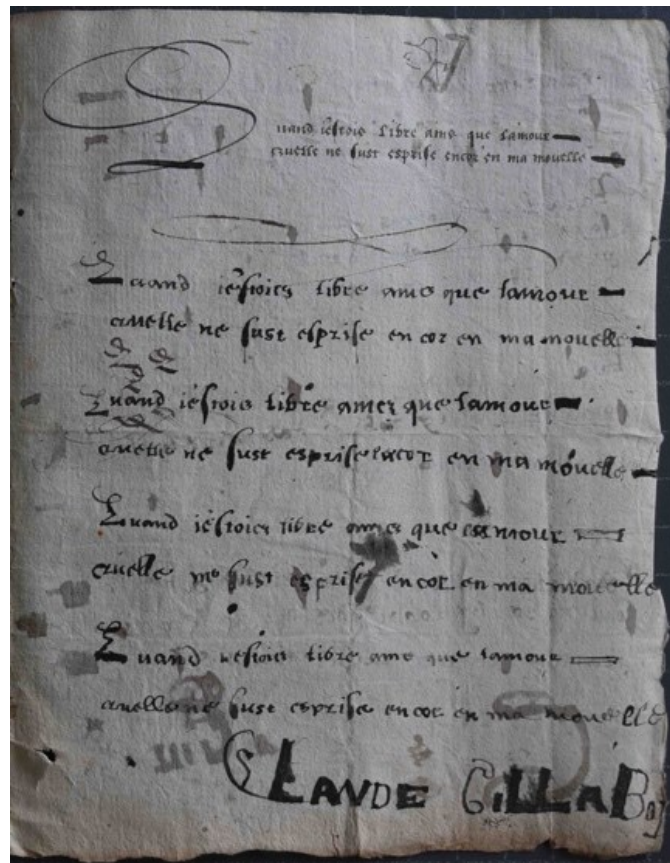 27
Quand iestois libre ains que lamour
cruelle ne fust esprise encor en ma mouelle
Quand iestoies libre ams que lamour
cruelle ne fust esprise en cor en ma mouelle
Quand iestois libre ames que lamour
cruelle ne fust esprise encor en ma mouelle
Quand iestoies libre ames que lamour
cruelle ne fust esprise encor en ma mouelle
Quand iestois libre ams que lamour
cruelle ne fust esprise en cor en ma mouelle
CLAUDE GILLAB